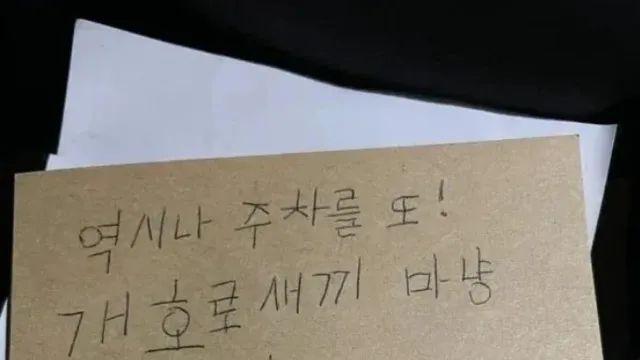 역시나 주차를 또!
개호로새끼 마냥